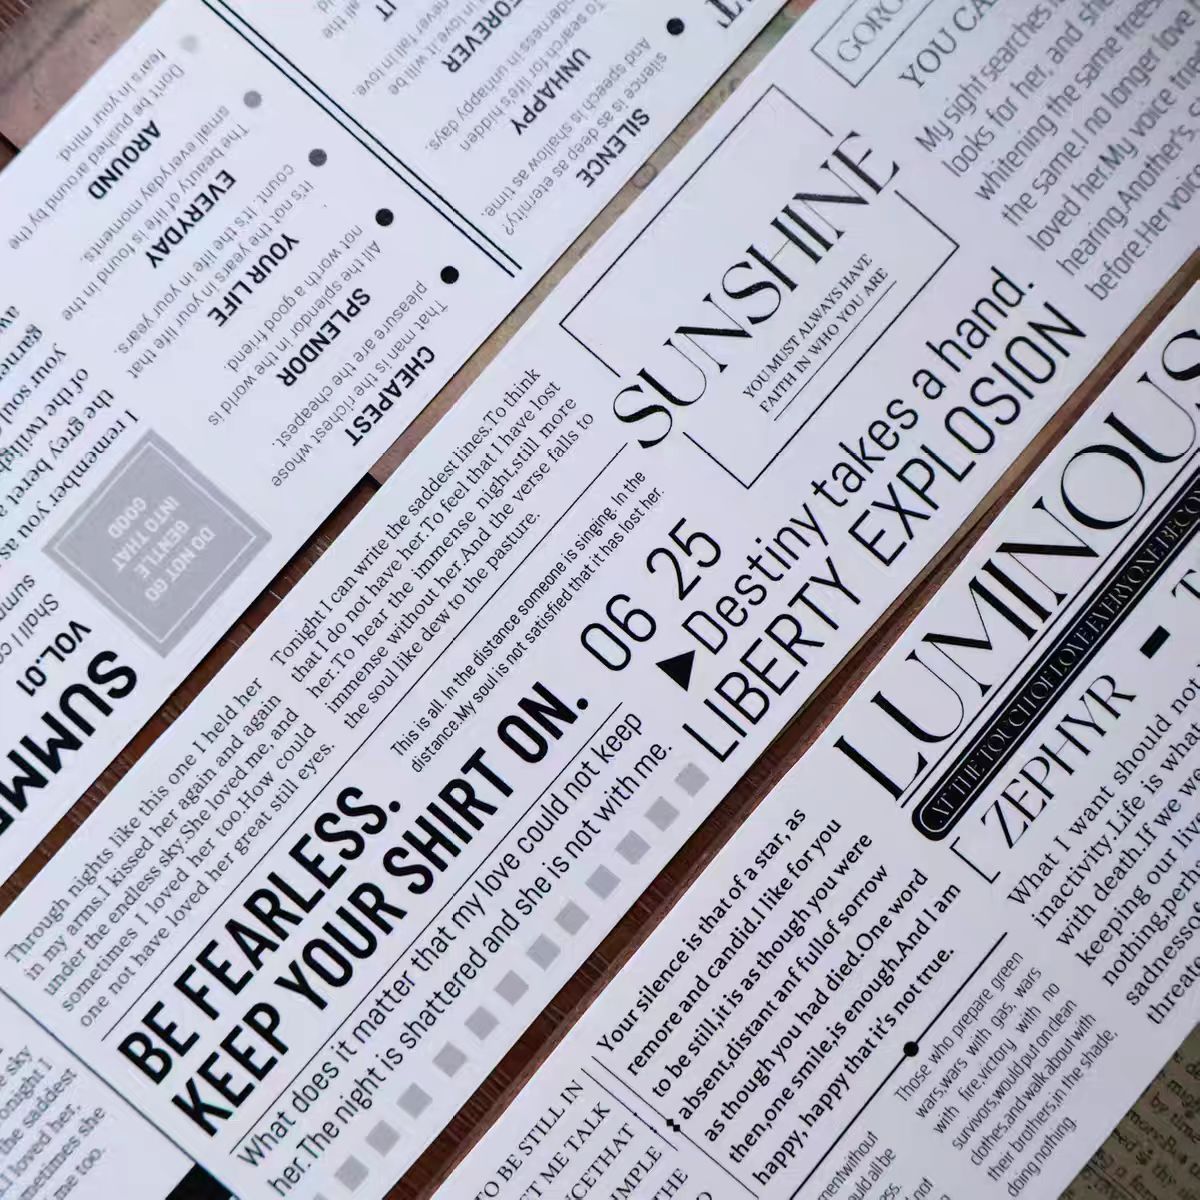 AROUND
Don't be pushed around by the
fears in your mind.
EVERYDAY
The beauty of life is found in the
small everyday moments.
YOUR LIFE
it's not the years in your life that
count. it's the life in your years.
SPLENDOR
All the splendor in the world is
not worth a good friend.
CHEAPEST
That man is the richest whose
pleasure are the cheapest.
IT
FOREVER
in love it will be
never fall in love.
UNHAPPY
To search for life's hidden
tenderness in unhappy days.
SILENCE
silence is as deep as eternity?
And speech is shallow as time.
I remember you as
the grey beret a
of the twiligh
your soul
DO NOT GO
GENTLE
INTO THAT
GOOD
Shall I co
VOL.01
SUMME
Through nights like this one I held her
in my arms.I kissed her again and again
under the endless sky.She loved me, and
sometimes I loved her too.How could
one not have loved her great still eyes.
Tonight I can write the saddest lines.To think
that I do not have her.To feel that I have lost
her.To hear the immense night,still more
immense without her.And the verse falls to
the soul like dew to the pasture.
This is all. In the distance someone is singing. In the
distance.My soul is not satisfied that it has lost her.
BE FEARLESS.
KEEP YOUR SHIRT ON.
06 25
What does it matter that my love could not keep
her.The night is shattered and she is not with me.
SUNSHINE
YOU MUST ALWAYS HAVE
FAITH IN WHO YOU ARE
▶Destiny takes a hand.
LIBERTY EXPLOSION
YOU CA
My sight searches
looks for her, and she
whitening the same trees
the same.I no longer love
loved her.My voice
hearing.Another's.
before.Her voice
LUMINOUS
AT THE TOUCH OF LOVE EVERYONE BECO
ZEPHYR
What I want should not
inactivity.Life is what
with death.If we wa
keeping our liv
nothing,perh
sadness
threate
Your silence is that of a star, as
remore and candid.I like for you
to be still,it is as though you were
absent,distant anf fullof sorrow
as though you had died.One word
then,one smile,is enough.And I am
happy, happy that it's not true.
Those who prepare green
wars,wars with gas, wars
with fire,victory with no
survivors,would put on clean
clothes,and walk about with
their brothers,in the shade,
doing nothing
TO BE STILL IN
ET ME TALK
MPLE
THE
e sky
onight I
the saddest
I loved her,
metimes she
me too.